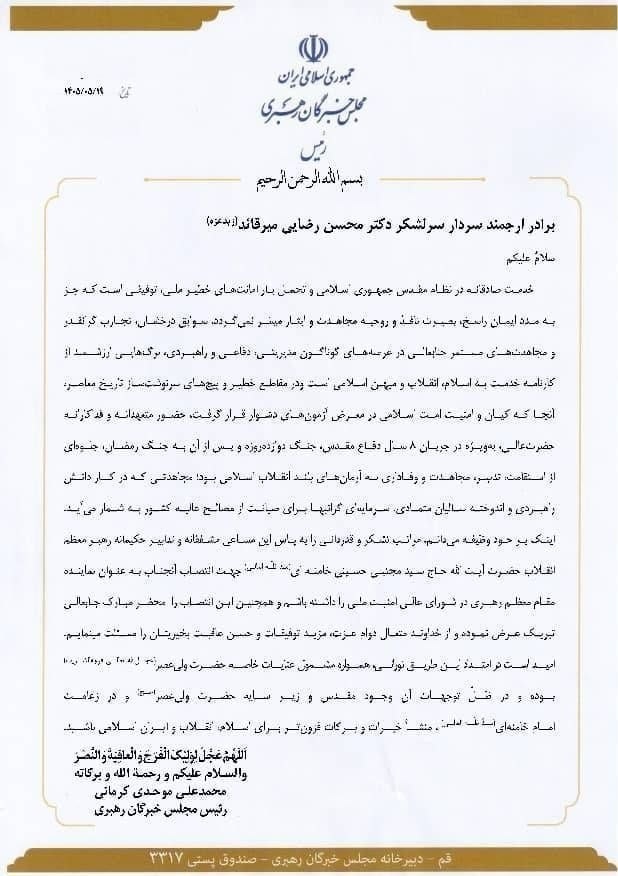 جمهوری اسلامی ایران
مجلس خبرگان رهبری
رئیس
تاریخ ۱۴۰۵/۰۵/۱۹
بسم الله الرحمن الرحیم
برادر ارجمند سردار سرلشکر دکتر محسن رضایی میرقائد(زید عزه)
سلامُ علیکم
خدمت صادقانه در نظام مقدس جمهوری اسلامی و تحمل بار امانت‌های خطیر ملی، توفیقی است که جز
به مدد ایمان راسخ، بصیرت نافذ و روحیه مجاهدت و ایثار میسر نمی‌گردد. سوابق درخشان، تجارب گرانقدر
و مجاهدت‌های مستمر جنابعالی در عرصه‌های گوناگون مدیریتی، دفاعی و راهبردی، برگ‌هایی ارزشمند از
کارنامه خدمت به اسلام، انقلاب و میهن اسلامی است ودر مقاطع خطیر و پیچ‌های سرنوشت‌ساز تاریخ معاصر،
آنجا که کیان و امنیت امت اسلامی در معرض آزمون‌های دشوار قرار گرفت، حضور متعهدانه و فداکارانه
حضرت‌عالی، به‌ویژه در جریان ۸ سال دفاع مقدس، جنگ دوازده‌روزه و پس از آن به جنگ رمضان، جلوه‌ای
از استقامت، تدبیر، مجاهدت و وفاداری به آرمان‌های بلند انقلاب اسلامی بود؛ مجاهدتی که در کنار دانش
راهبردی و اندوخته سالیان متمادی، سرمایه‌ای گرانبها برای صیانت از مصالح عالیه کشور به شمار می‌آید.
اینک بر خود وظیفه می‌دانم، مراتب تشکر و قدردانی را به پاس این مساعی مشفقانه و تدابیر حکیمانه رهبر معظم
انقلاب حضرت آیت الله حاج سید مجتبی حسینی خامنه ای(مد ظله العالی) جهت انتصاب آنجناب به عنوان نماینده
مقام معظم رهبری در شورای عالی امنیت ملی را داشته باشم و همچنین این انتصاب را محضر مبارک جنابعالی
تبریک عرض نموده و از خداوند متعال دوام عزت، مزید توفیقات و حسن عاقبت بخیریتان را مسئلت مینمایم.
امید است در امتداد این طریق نورانی، همواره مشمول عنایات خاصه حضرت ولی‌عصر
بوده و در ظلّ توجهات آن وجود مقدس و زیر سایه حضرت ولی‌عصر و در زعامت
امام خامنه‌ای(مد ظله العالی)، منشأ خیرات و برکات فزون‌تر برای اسلام، انقلاب و ایران اسلامی باشید.
اَللّهُمَّ عَجِّلْ لِوَلِیِّکَ الْفَرَجَ وَالْعافِیَةَ وَالنَّصْرَ
والسلام علیکم و رحمة الله و برکاته
محمدعلی موحدی کرمانی
رئیس مجلس خبرگان رهبری
قم - دبیرخانه مجلس خبرگان رهبری - صندوق پستی ۳۳۱۷